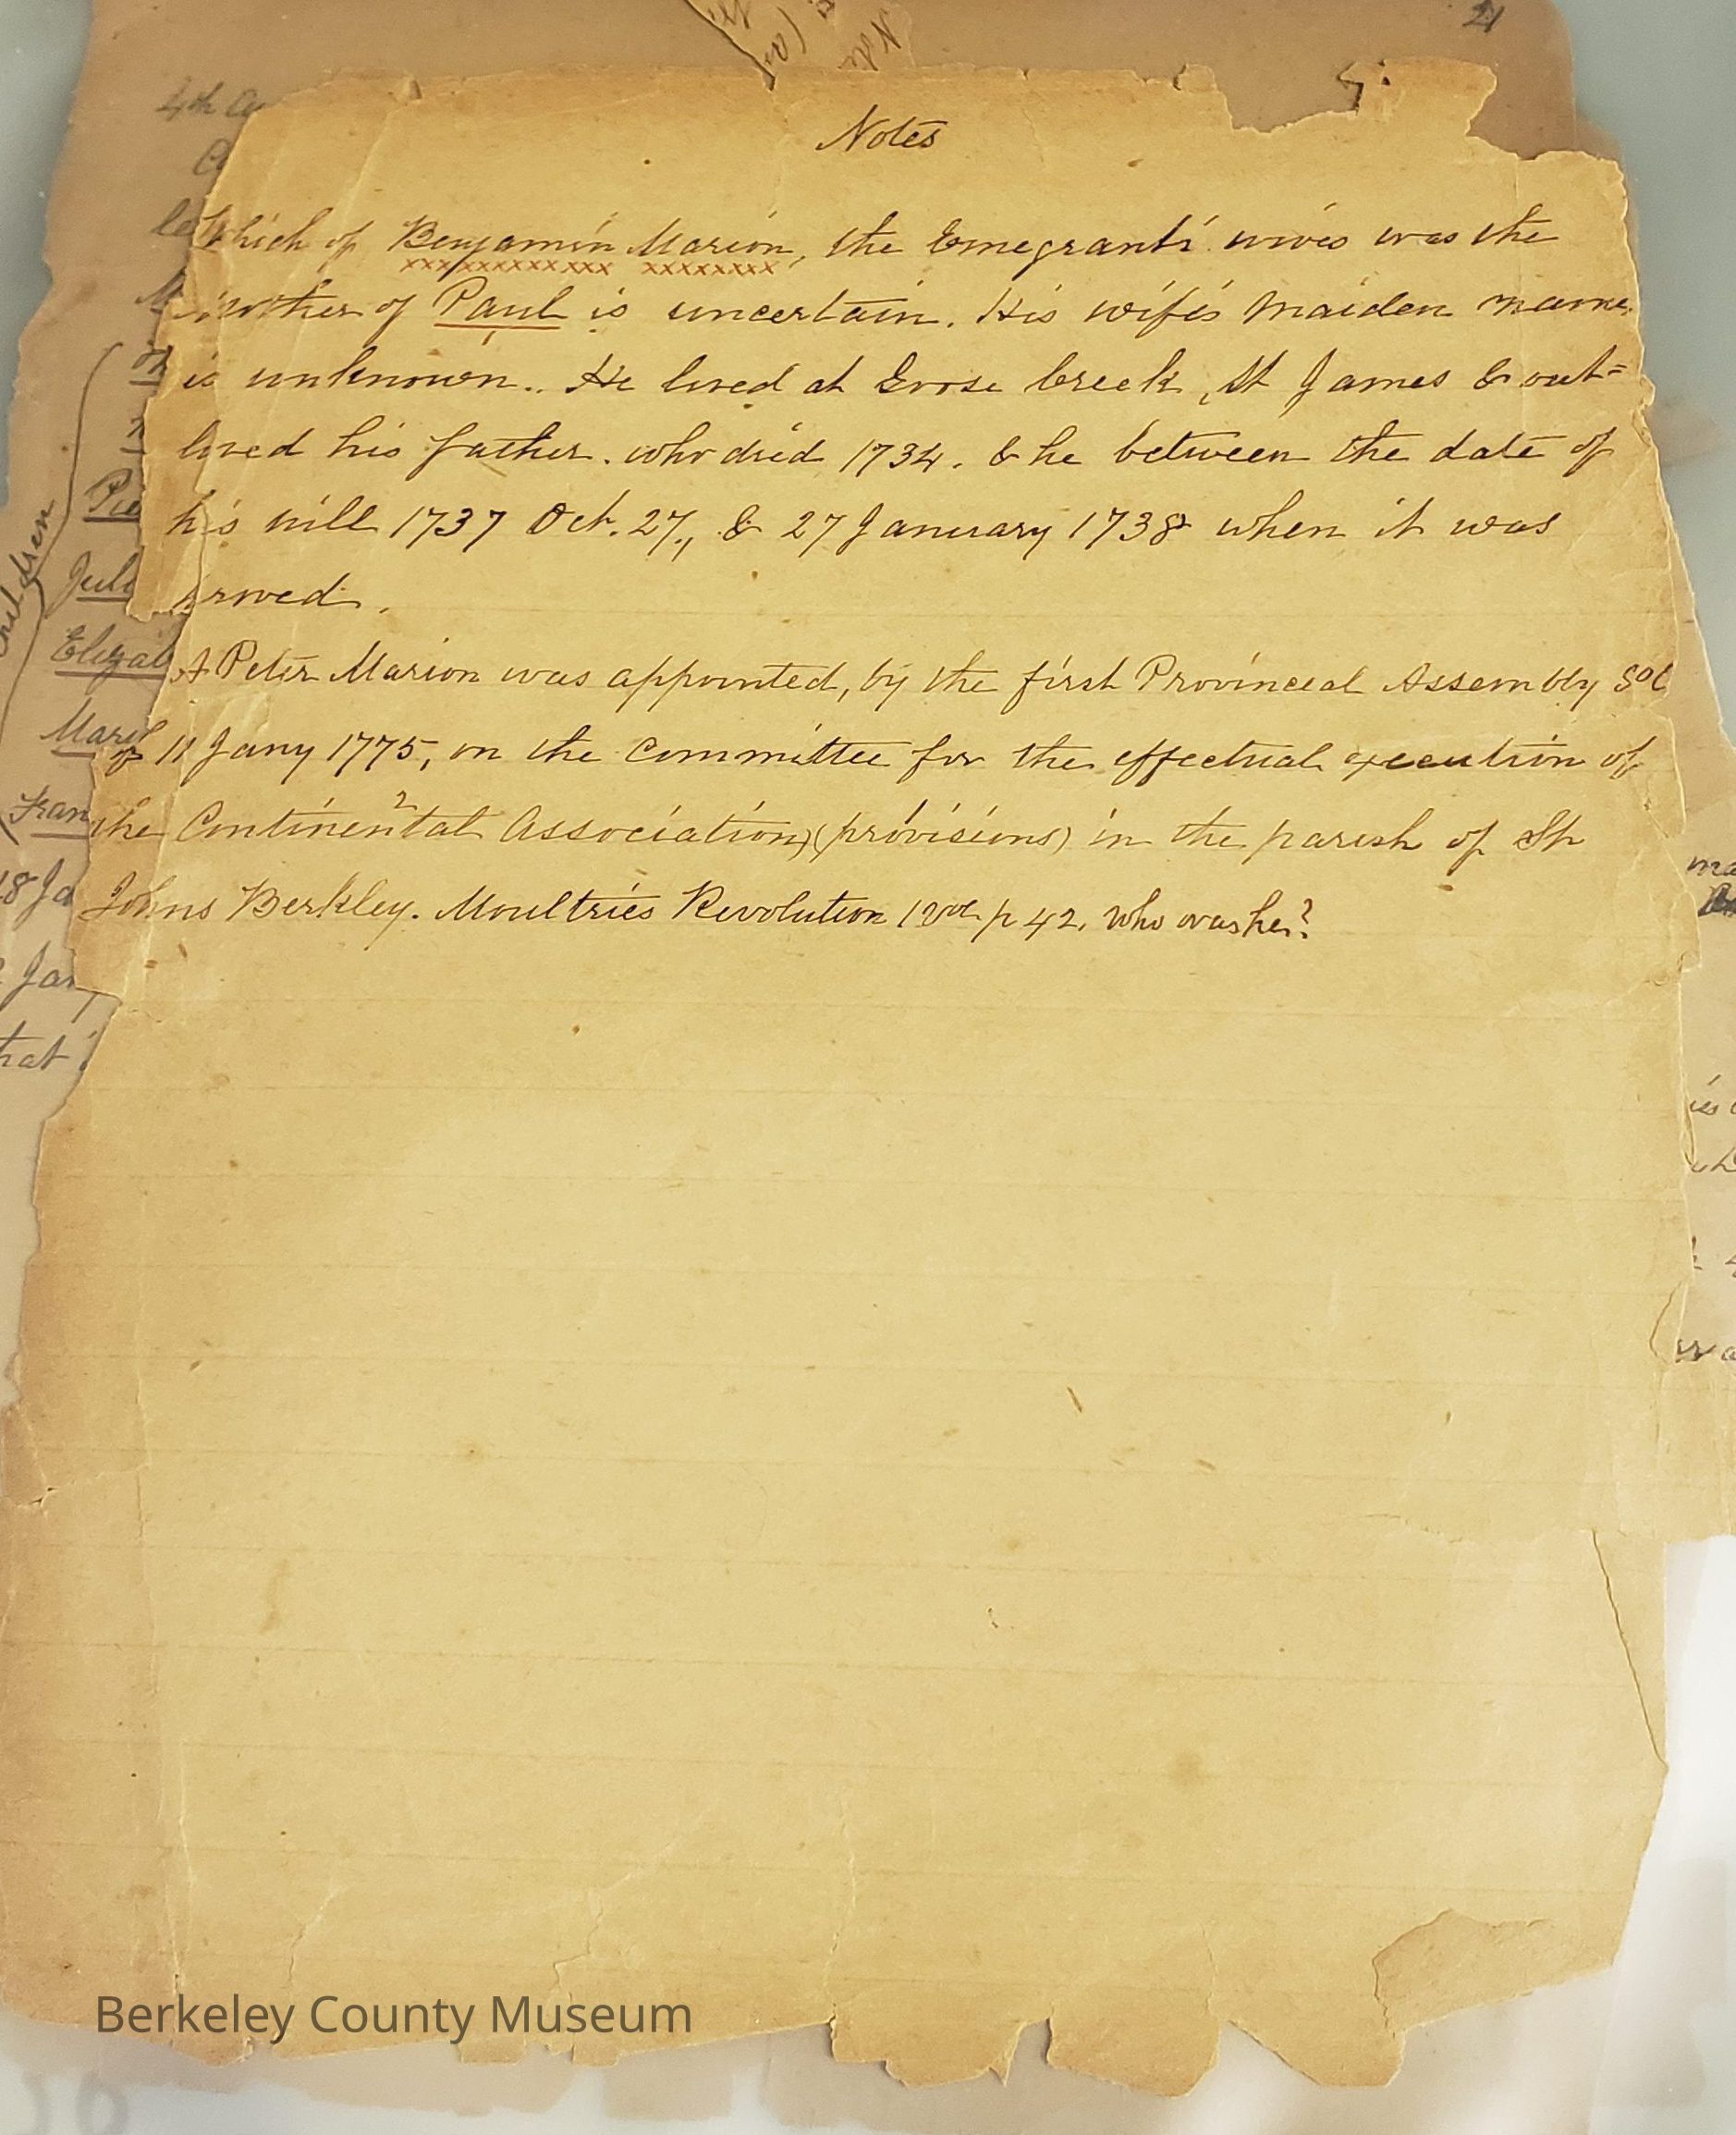 21
4th
Notes
Which of Benjamin Marion, the Emegrants' wives was the
mother of Paul is uncertain. His wife's maiden name
is unknown.. He lived at Goose Creek, St James & out=
lived his father. who died 1734. & he between the date of
his will 1737 Oct. 27,, & 27 January 1738 when it was
proved.
A Peter Marion was appointed, by the first Provincial Assembly So C
of 11 Jany 1775, on the committee for the effectual execution of
the Continental Association) (provisions) in the parish of St
Johns Berkley. Moultries Revolution 1 Vol p 42. Who was he?
children
Elizab
Mary
Fran
18 Ja
Jan
hat
Berkeley County Museum